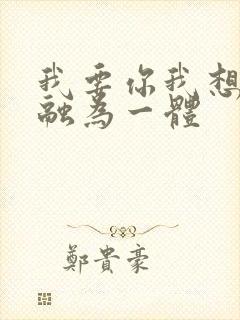 我要你我想
融為一體
鄭貴豪